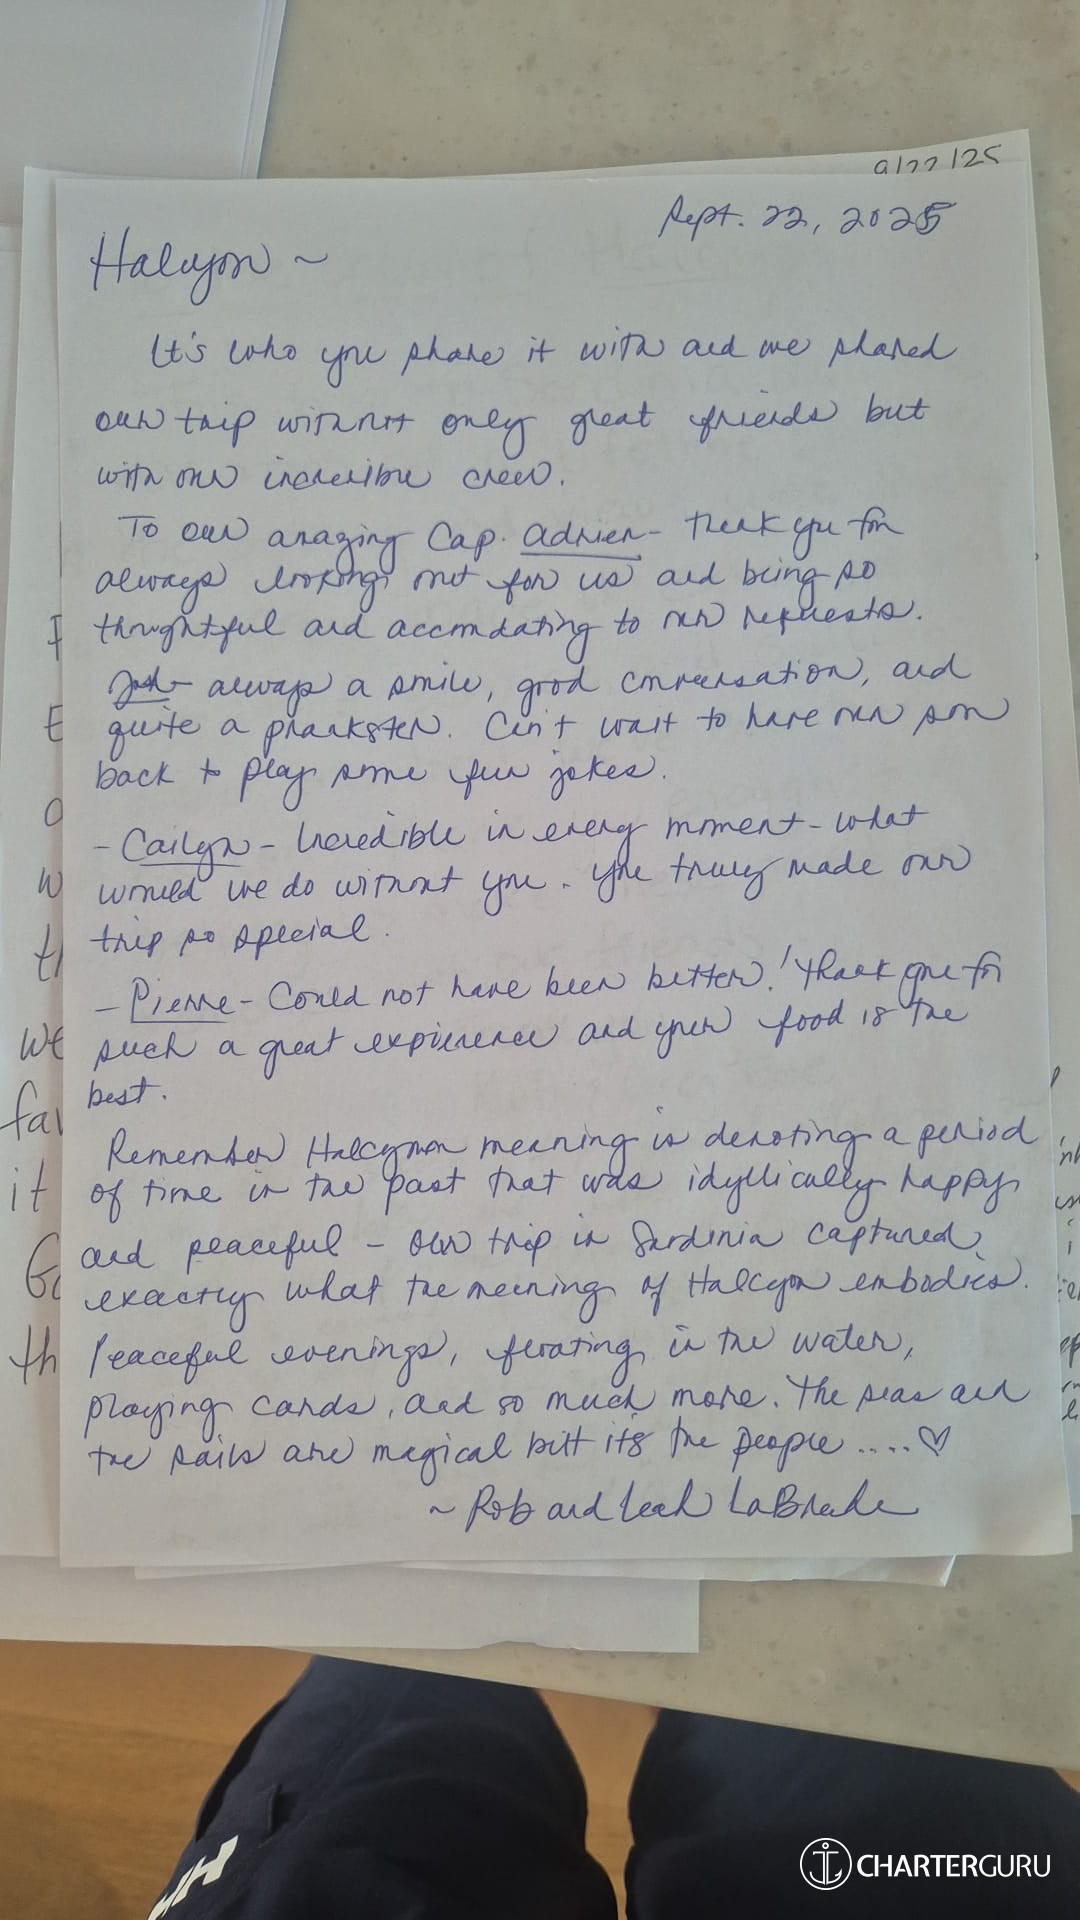 9/22/25
Sept. 22, 2025
Halcyon ~
It's who you share it with and we shared
our trip with not only great friends but
with our incredible crew.
To our amazing Cap. Adrien - Thank you for
always looking out for us and being so
thoughtful and accomdating to our requests.
Josh - always a smile, good conversation, and
quite a prankster. Can't wait to have our son
back to play some fun jokes.
- Cailyn - Incredible in every moment - what
would we do without you. You truly made our
trip so special.
- Pierre - Could not have been better! Thank you for
such a great experience and your food is the
best.
Remember Halcyon meaning is denoting a period
of time in the past that was idyllically happy
and peaceful - Our trip in Sardinia captured
exactly what the meaning of Halcyon embodies.
Peaceful evenings, floating in the water,
playing cards, and so much more. The seas and
the sails are magical but it's the people .... ♡
~ Rob and Leah
we
fav
it
th
CHARTERGURU